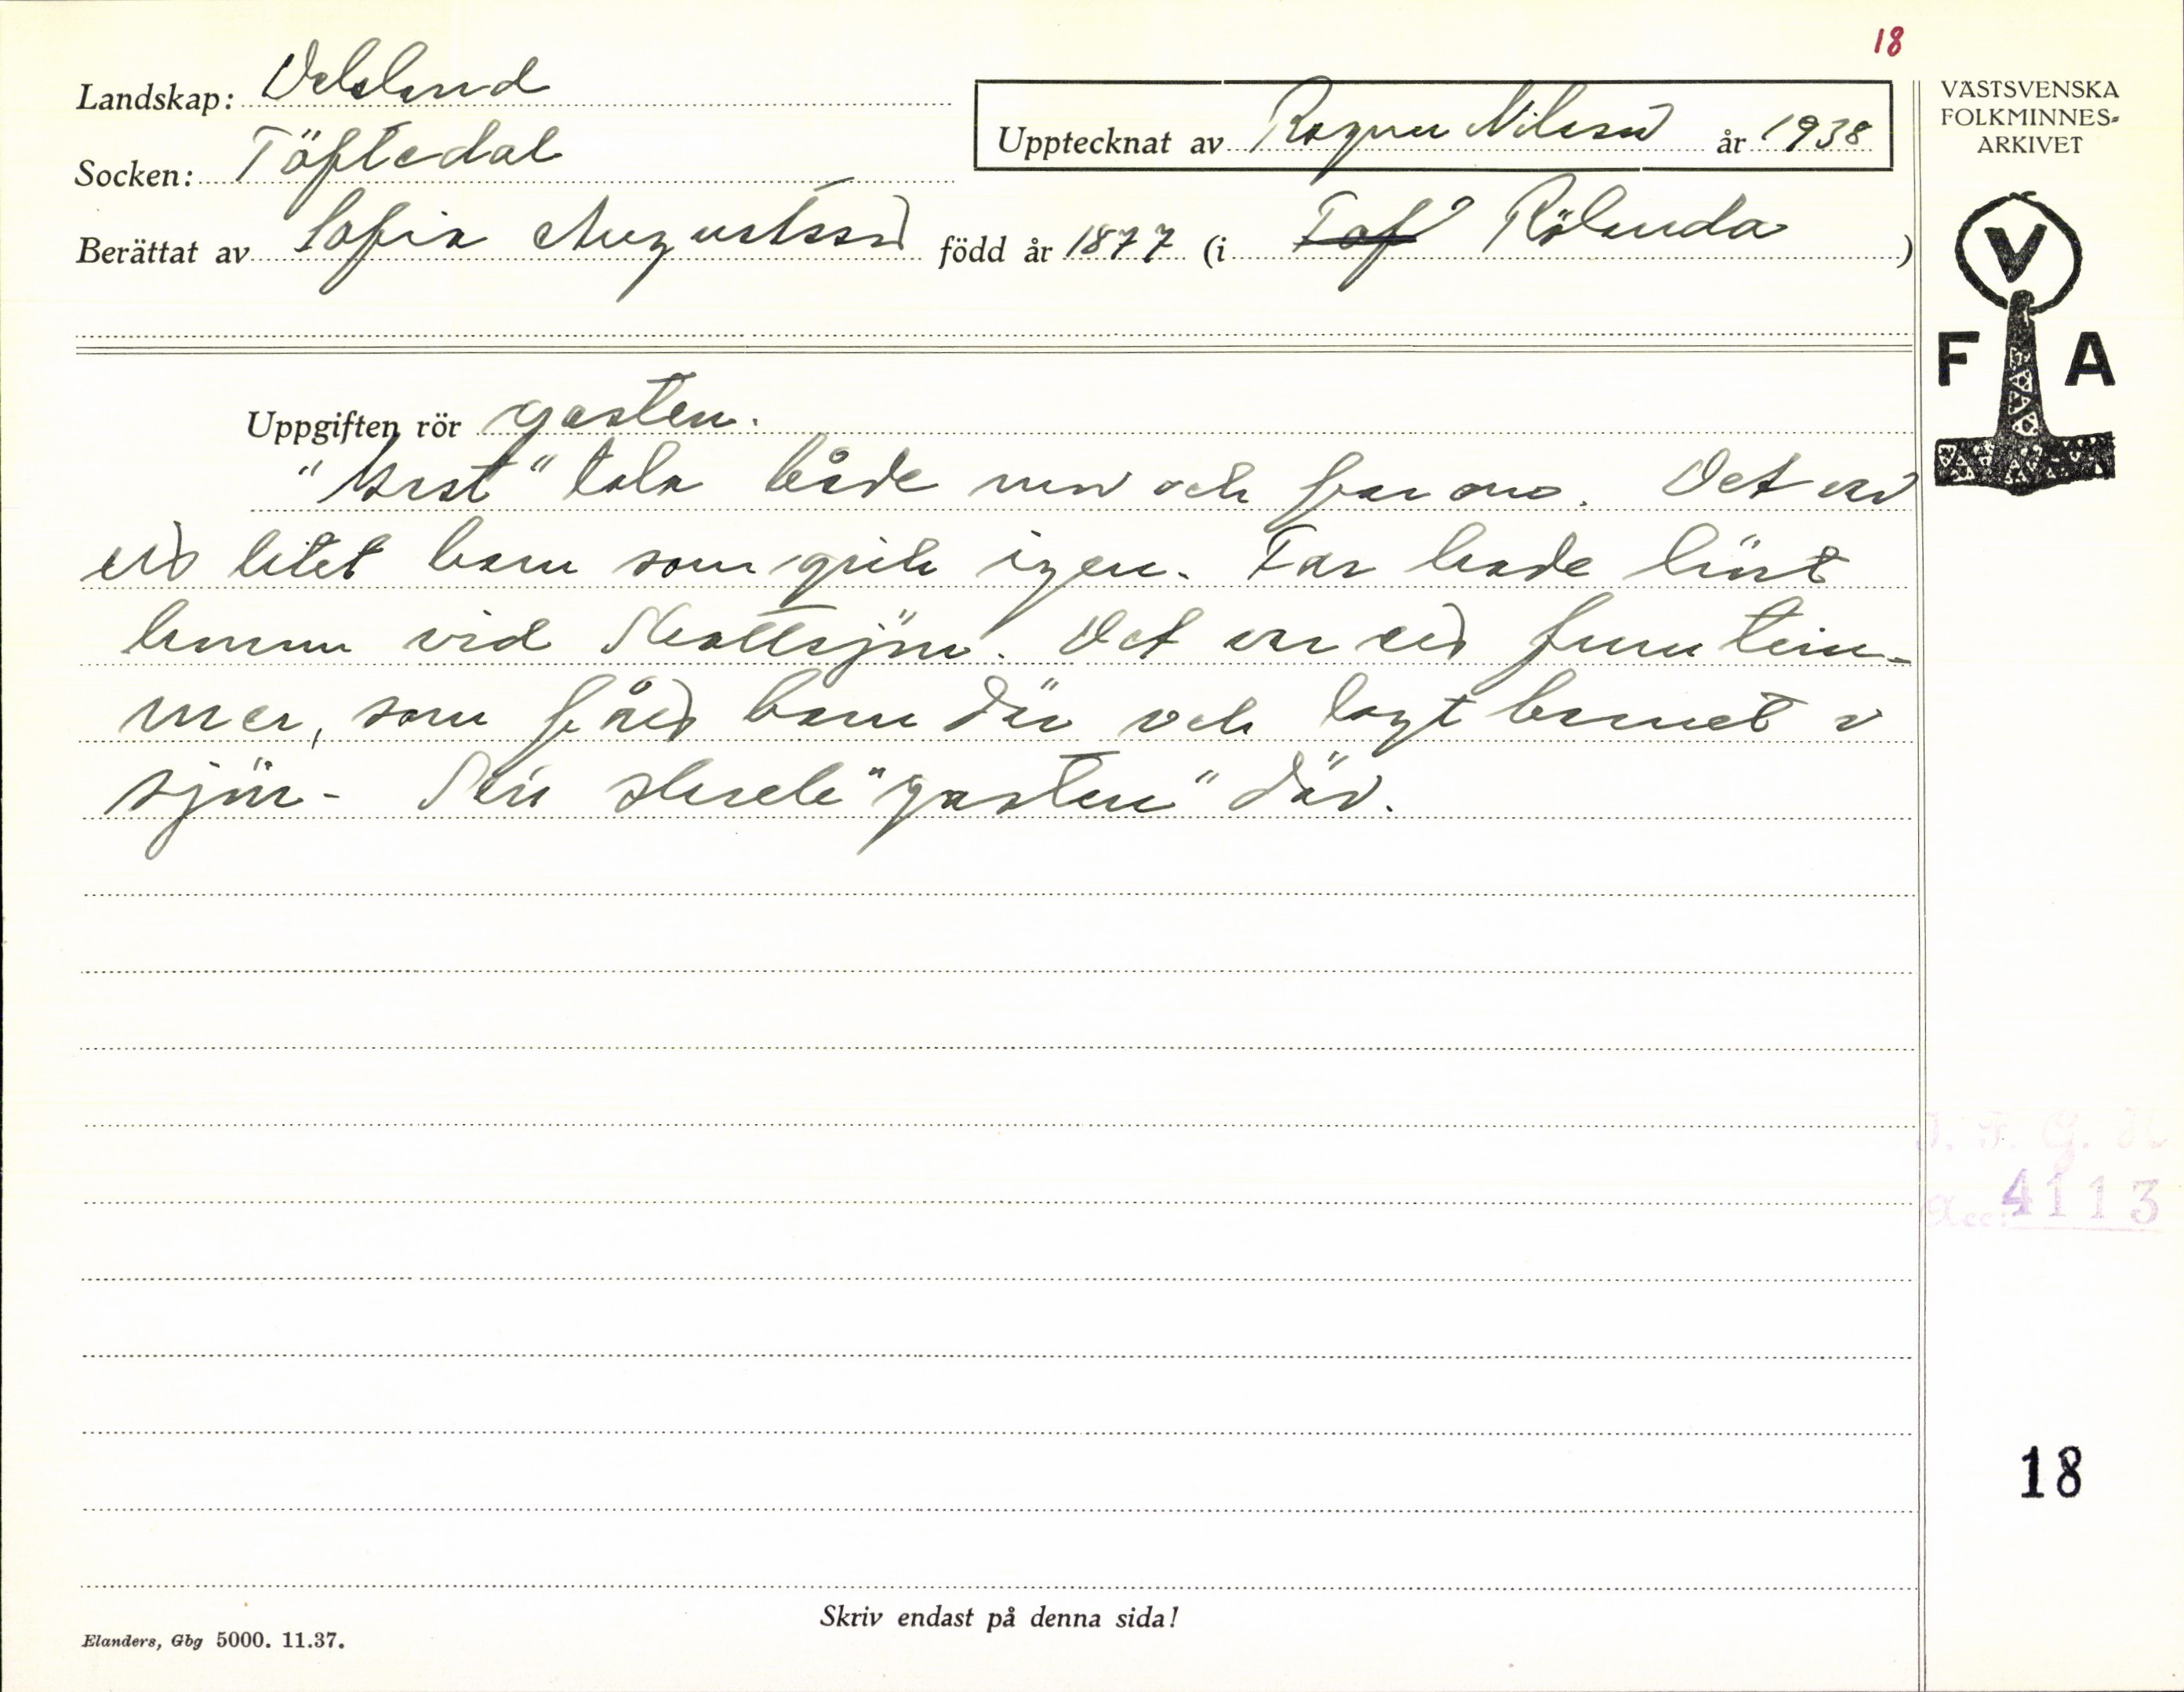 18
Landskap: Dalsland
Upptecknat av Ragnar Nilsson år 1938
VÄSTSVENSKA
FOLKMINNES-
ARKIVET
Socken: Töftedal
Berättat av Sofia Augustsson född år 1877 (i Töf Rölanda)
V
F A
Uppgiften rör gasten.
"Gast" tala både mor och far om. Det var
ett litet barn som gick igen. Far hade hört
honom vid Skottsjön. Det var ett fruntim-
mer, som fått barn där och lagt barnet i
sjön. Sen skrek "gasten" där.
I. F. G. H
Acc: 4113
18
Skriv endast på denna sida!
Elanders, Gbg 5000. 11.37.